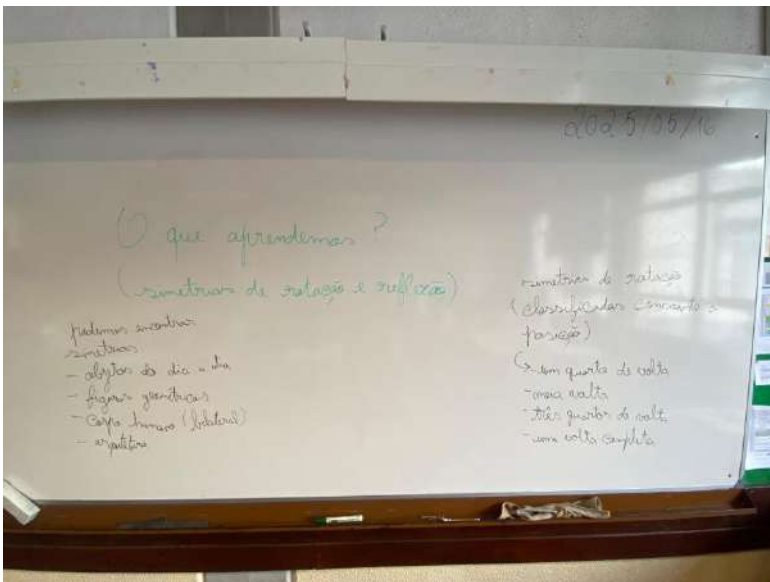 2025/05/16
O que aprendemos?
(simetrias de rotação e reflexão)
podemos encontrar
simetrias
- objetos do dia a dia
- figuras geométricas
- corpo humano (bilateral)
- arquitetura
simetrias de rotação
(classificadas consoante a
posição)
↳ - um quarto de volta
- meia volta
- três quartos de volta
- uma volta completa